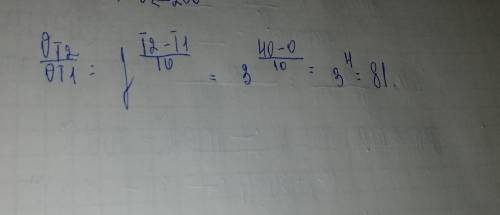 υT2/υT1 = γ^((T2-T1)/10) = 3^((40-0)/10) = 3^4 = 81.